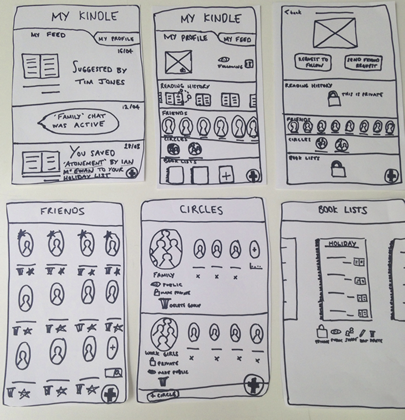 MY KINDLE
MY FEED
MY PROFILE
16/04
SUGGESTED BY
TIM JONES
12/04
'FAMILY' CHAT
WAS ACTIVE
28/03
YOU SAVED
'ATONEMENT' BY IAN
McEWAN TO YOUR
HOLIDAY LIST
MY KINDLE
MY PROFILE
MY FEED
READING HISTORY
FRIENDS
CIRCLES
BOOK LISTS
< back
REQUEST TO
FOLLOW
SEND FRIEND
REQUEST
READING HISTORY
THIS IS PRIVATE
FRIENDS
CIRCLES
BOOK LISTS
FRIENDS
CIRCLES
FAMILY
PUBLIC
MAKE PRIVATE
DELETE GROUP
WORK GIRLS
PRIVATE
MAKE PUBLIC
+ CIRCLE
BOOK LISTS
HOLIDAY